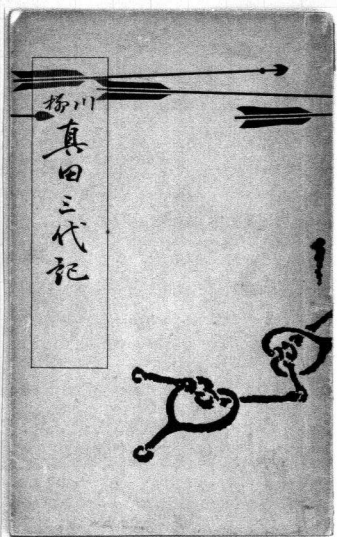 柳川
真田三代記